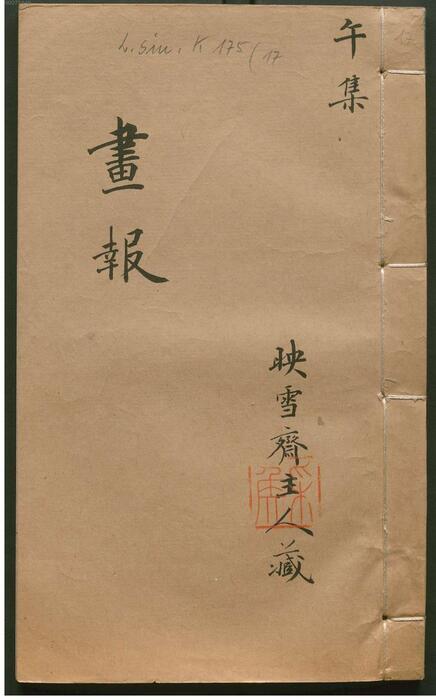 L. sin. K 175/17
17
午集
畫報
映雪齋主人藏